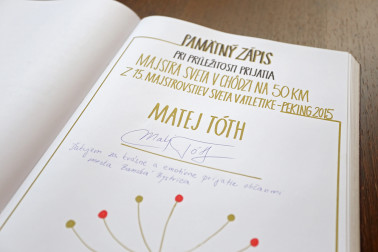 PAMÄTNÝ ZÁPIS
PRI PRÍLEŽITOSTI PRIJATIA
MAJSTRA SVETA V CHÔDZI NA 50 KM
Z 15. MAJSTROVSTIEV SVETA V ATLETIKE - PEKING 2015
MATEJ TÓTH
Matej Tóth
Ďakujem za krásne a emotívne prijatie občanmi
mesta Banská Bystrica